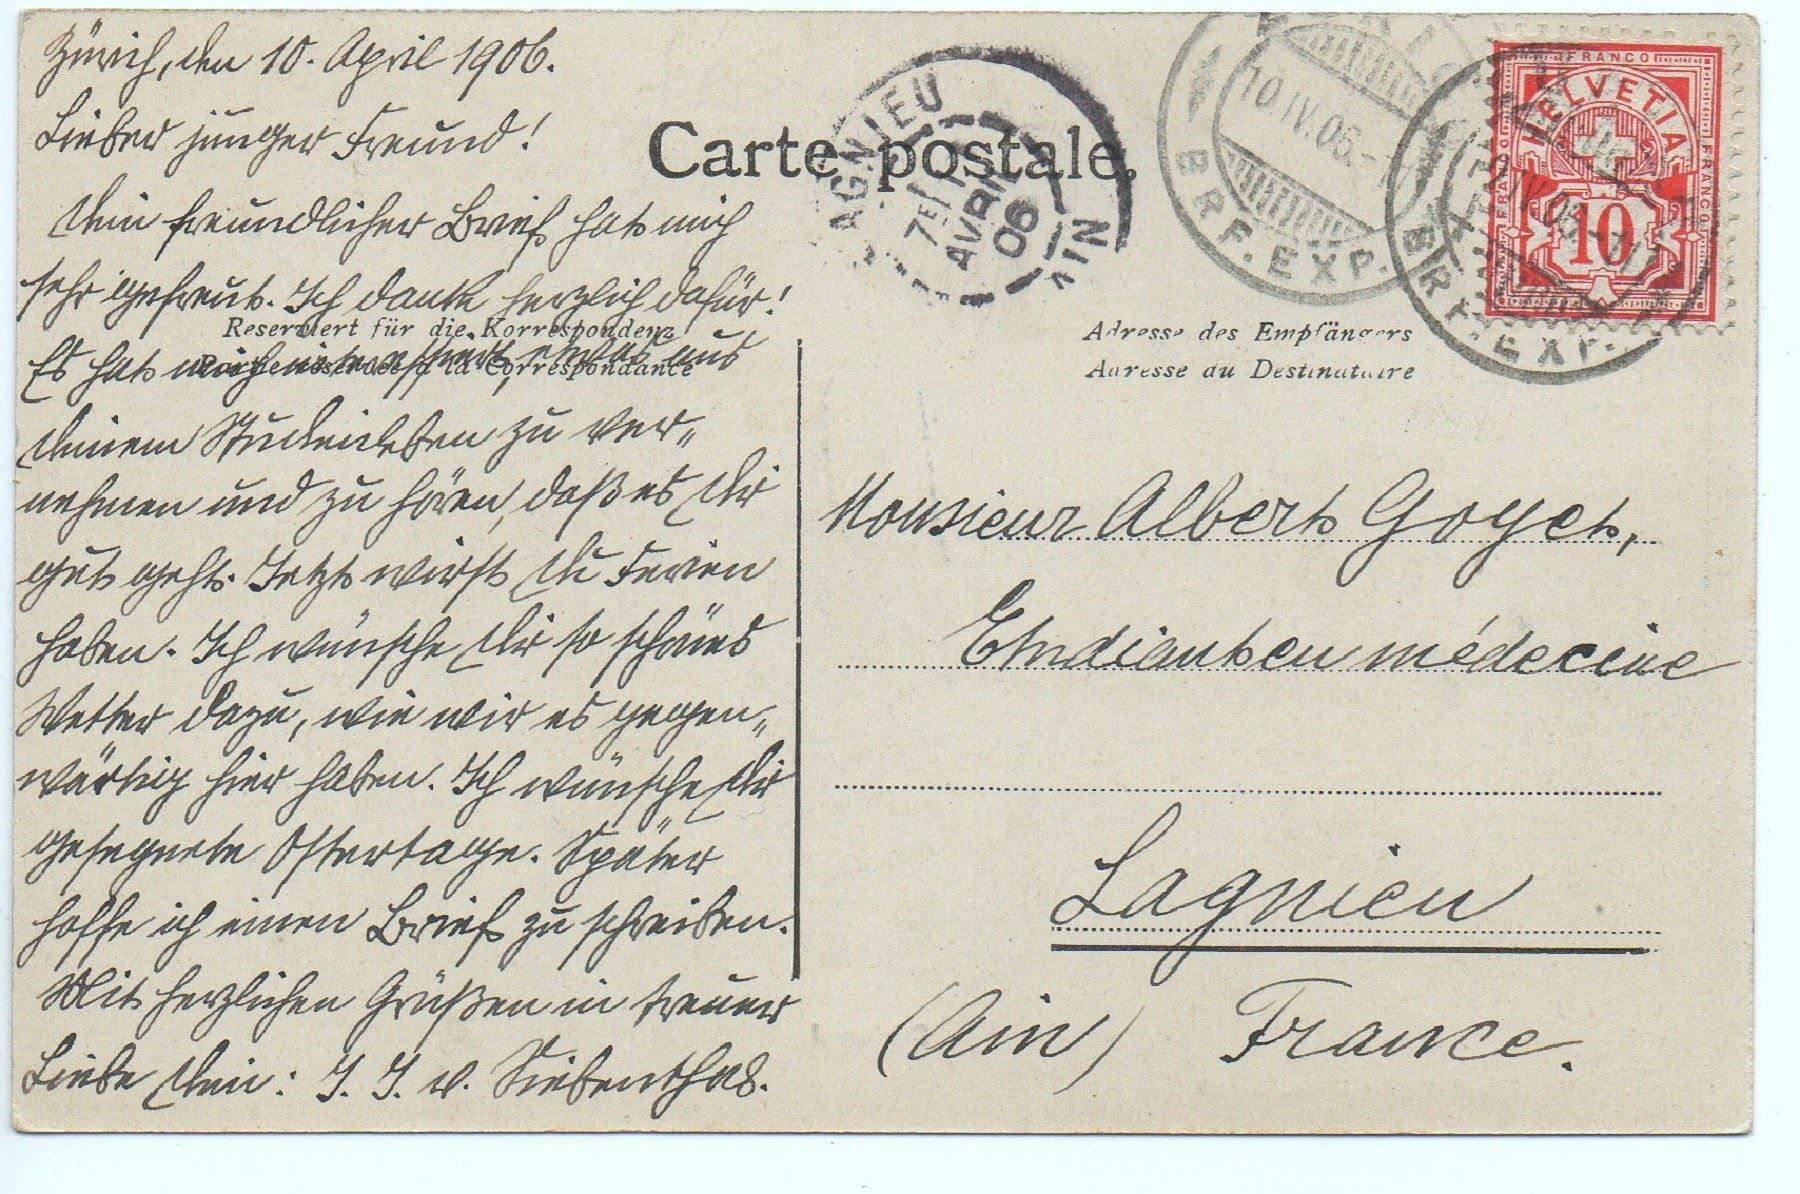 Zürich, den 10. April 1906.
Lieber junger Freund!
Dein freundlicher Brief hat mich
sehr gefreut. Ich danke herzlich dafür!
Es hat mich interessiert, etwas aus
Deinem Studienleben zu ver„
nehmen und zu hören, daß es Dir
gut geht. Jetzt wirst Du Ferien
haben. Ich wünsche Dir so schönes
Wetter dazu, wie wir es gegen„
wärtig hier haben. Ich wünsche Dir
gesegnete Ostertage. Später
hoffe ich einen Brief zu schreiben.
Mit herzlichen Grüßen in treuer
Liebe Dein: J. J. v. Siebenthal.
Carte postale.
Reserviert für die Korrespondenz
la Correspondance
Adresse des Empfängers
Adresse du Destinataire
Monsieur Albert Goyet,
Etudiant en médecine
Lagnieu
(Ain) France.
LAGNIEU
7E
AVRIL
06
AIN
10.IV.06.-
BRF.EXP.
BRF.EXP.
FRANCO
HELVETIA
FRANCO
FRANCO
10